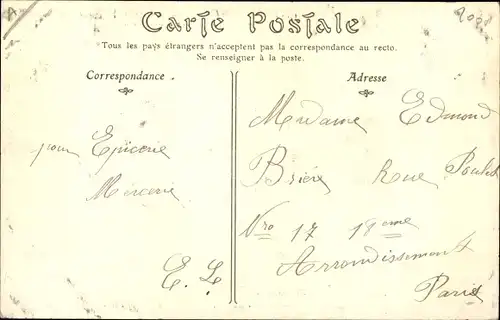 Carte Postale
Tous les pays étrangers n'acceptent pas la correspondance au recto.
Se renseigner à la poste.
Correspondance.
Adresse
pour Epicerie
Mercerie
E. L
Madame Edmond
Brière Rue Poulet
Nro 17 18eme
Arrondissement
Paris